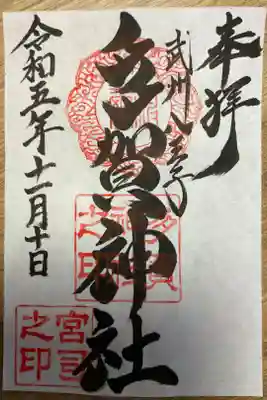 奉拝
武州八王子
多賀神社
令和五年十一月十日
多賀神社之印
宮司之印